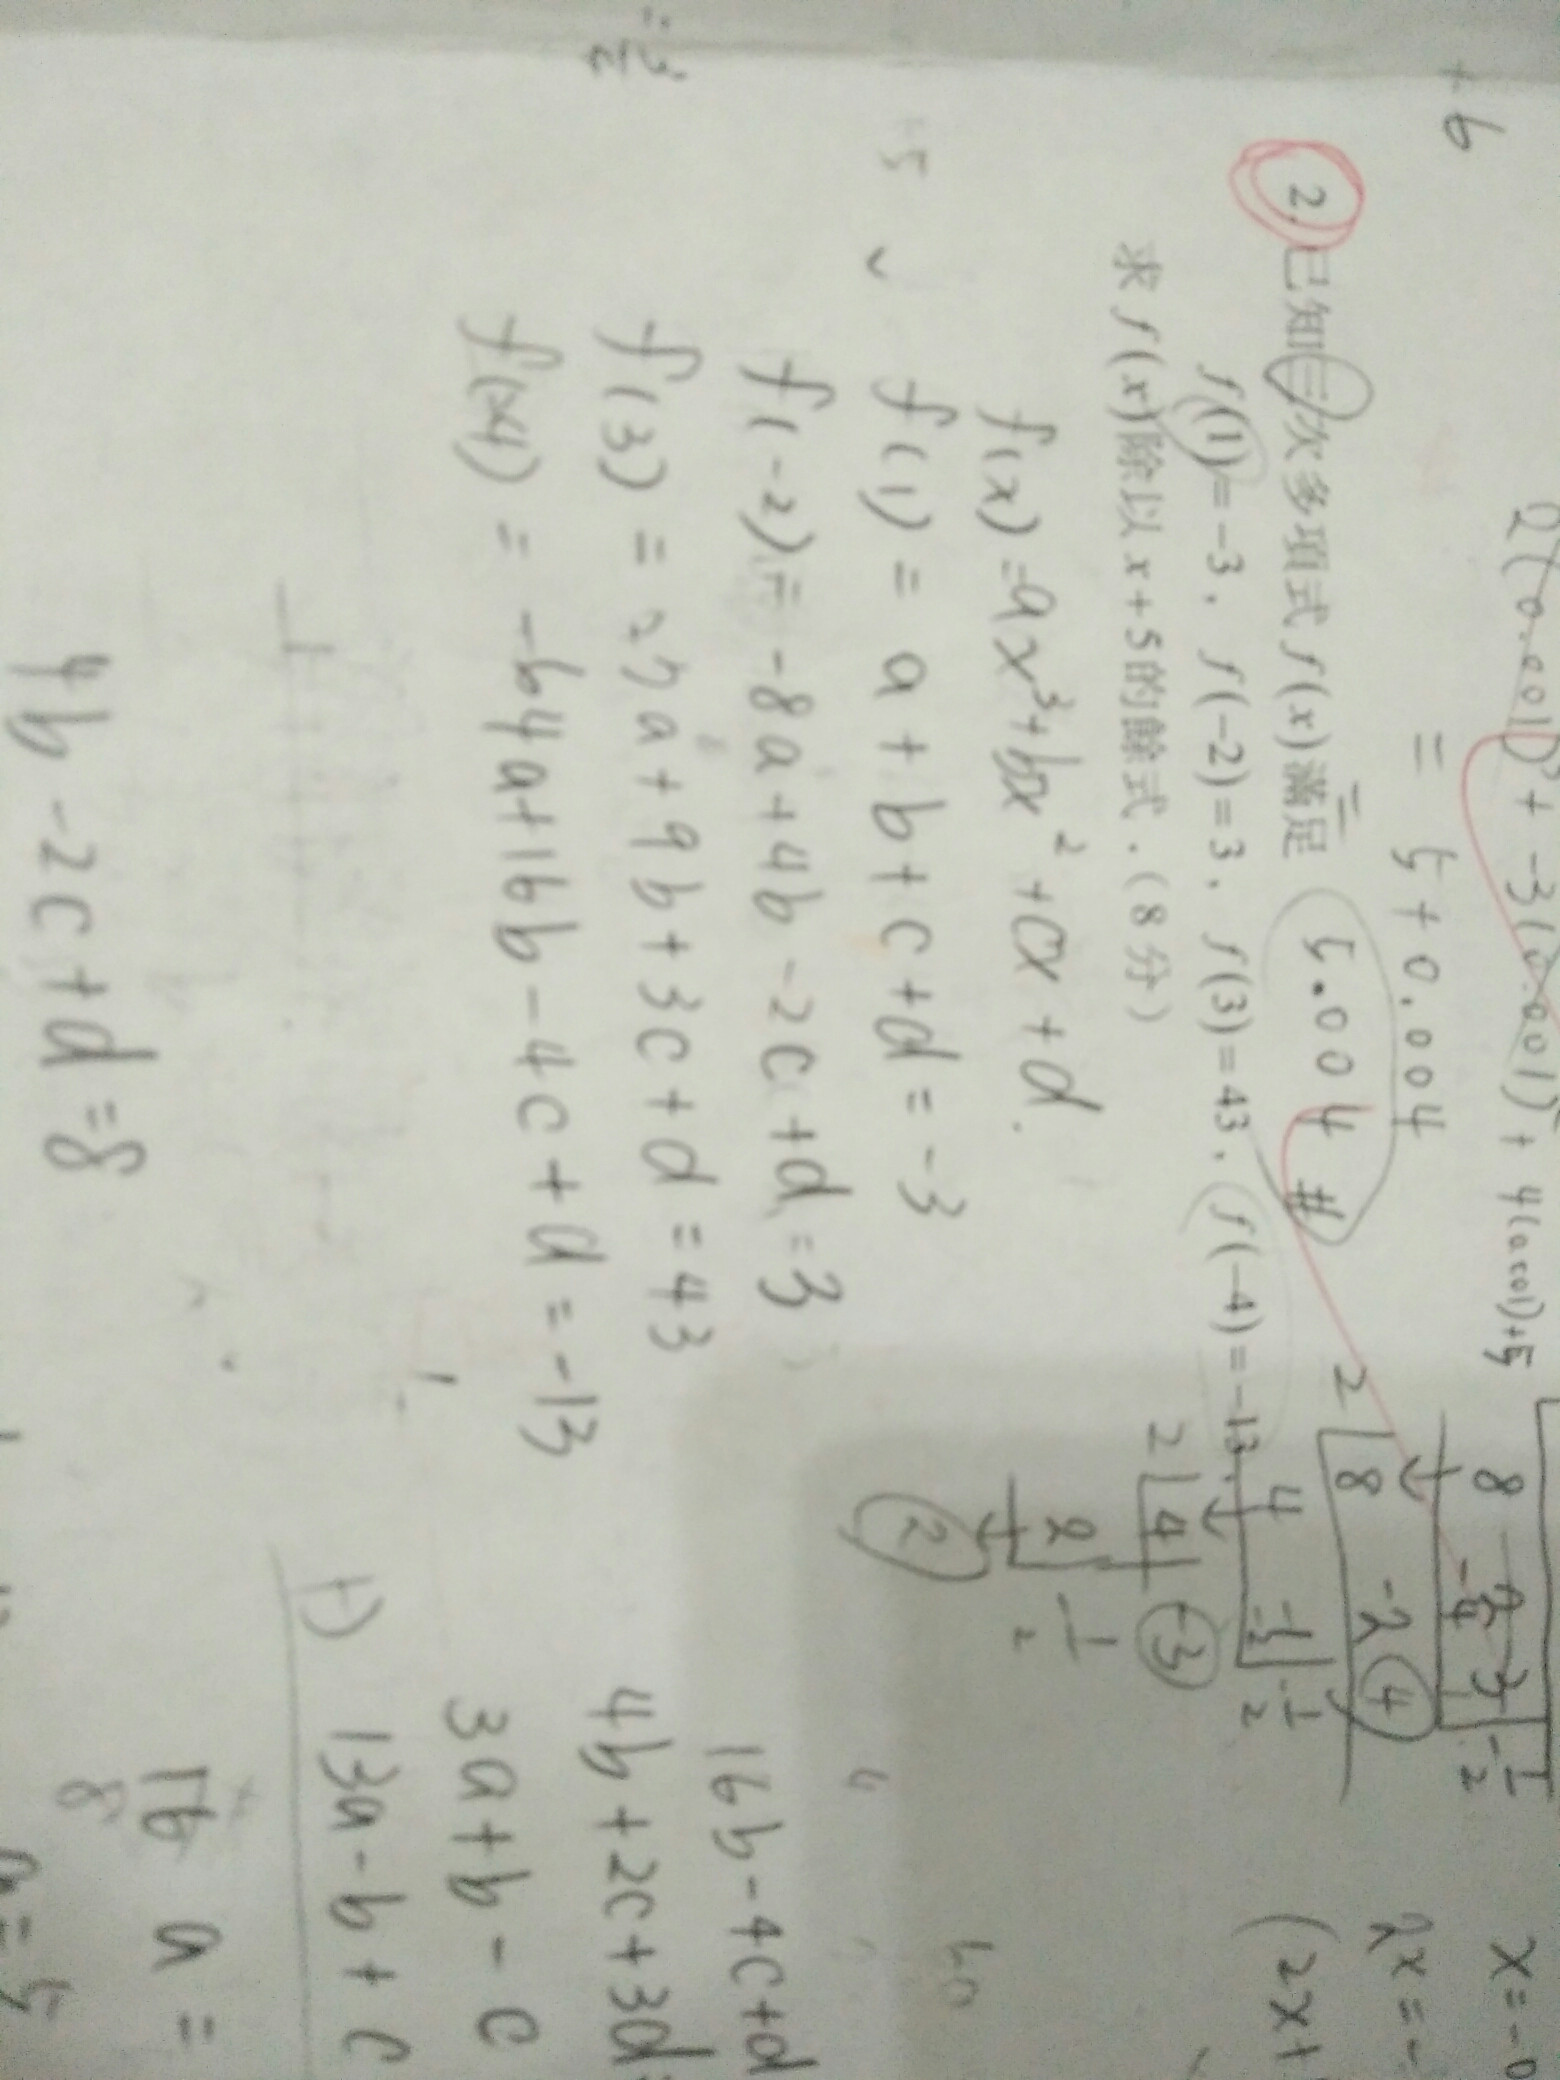 +6
Q(0.001)³ + -3(0.001)² + 4(0.001)+5
= 5+0.004
5.004 #
2. 已知三次多項式 f(x) 滿足
f(1)=-3, f(-2)=3, f(3)=43, f(-4)=-13,
求 f(x) 除以 x+5 的餘式.(8分)
f(x)=ax³+bx²+cx+d
f(1) = a+b+c+d = -3
f(-2) = -8a+4b-2c+d = 3
f(3) = 27a+9b+3c+d = 43
f(-4) = -64a+16b-4c+d = -13
4b-2c+d=8
2
8
8 -2 4
4
2 4 -3
2
2
x=-0
2x=-
(2x+
16b-4c+d
4b+2c+3d=
3a+b-c
+) 13a-b+c
16a =
8
a=5